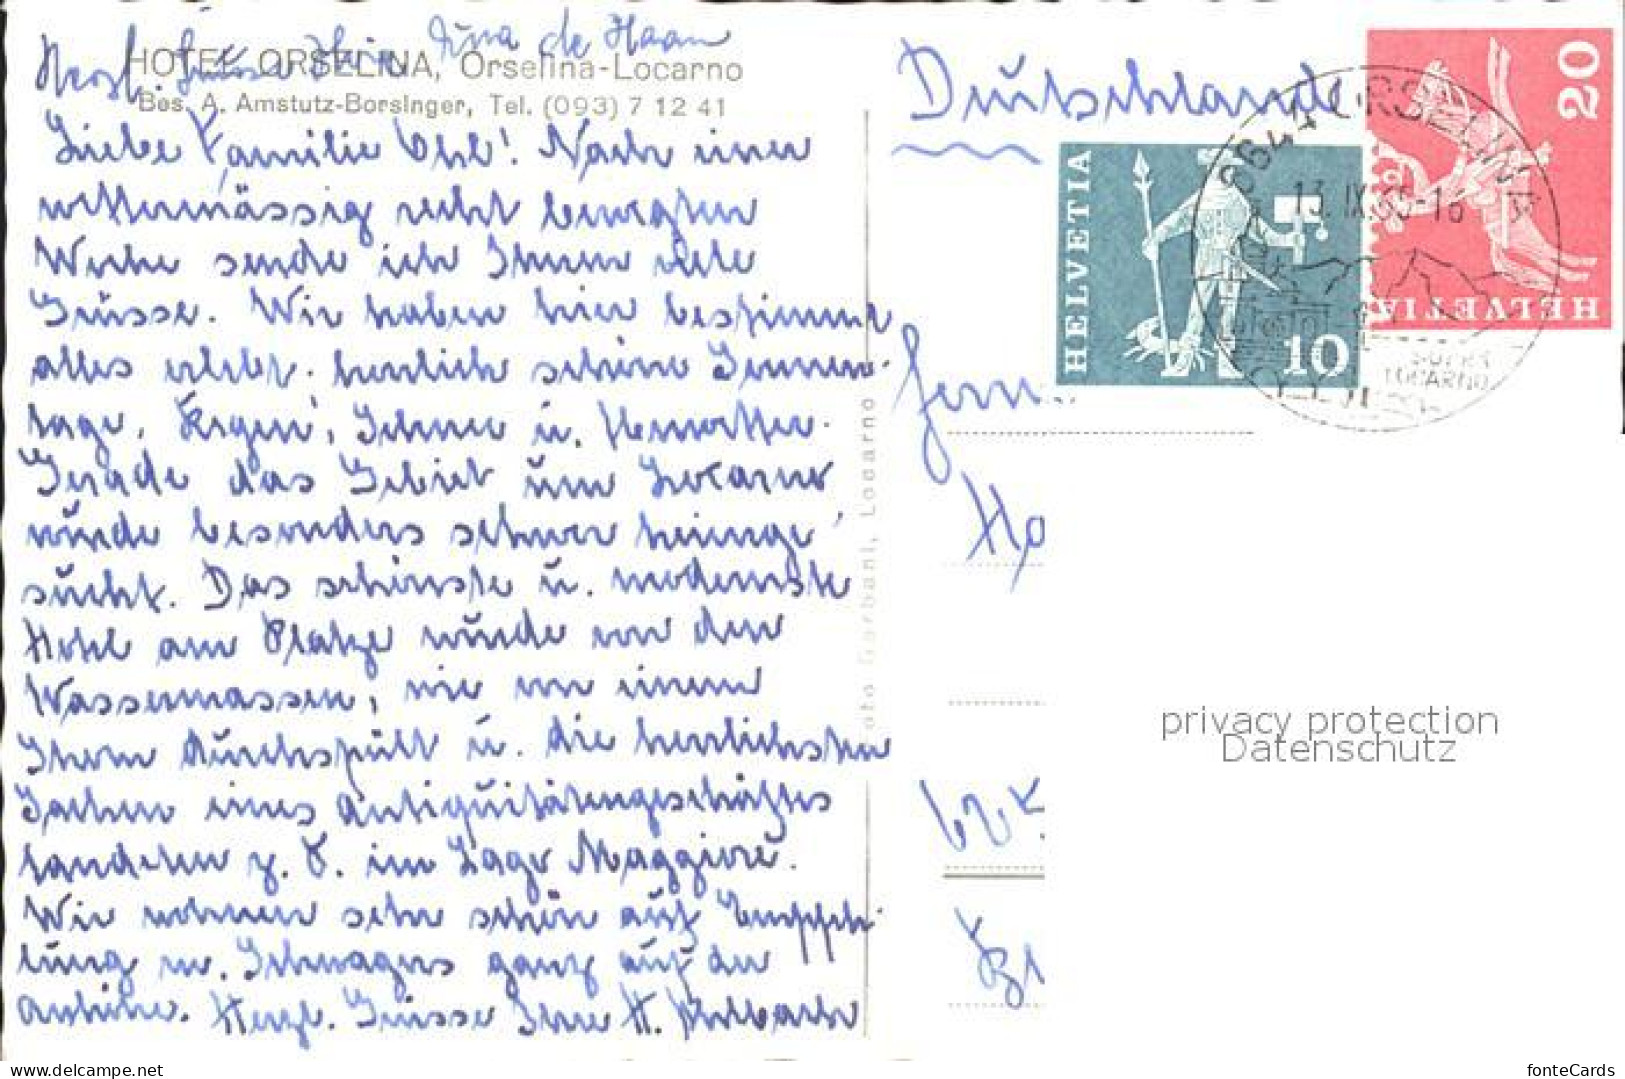 Herzl. Grüsse Ihre Tina de Haan
HOTEL ORSELINA, Orselina-Locarno
Bes. A. Amstutz-Borsinger, Tel. (093) 7 12 41
Liebe Familie Ohl! Nach einer
wettermässig recht bewegten
Woche sende ich Ihnen viele
Grüsse. Wir haben hier bestimmt
alles erlebt. herrlich schöne Sonnen-
tage, Regen, Schnee u. Unwetter.
Gerade das Gebiet um Locarno
wurde besonders schwer heimge-
sucht. Das schönste u. modernste
Hotel am Platze wurde von den
Wassermassen, wie von einem
Strom durchspült u. die herrlichsten
Sachen eines Antiquitätengeschäftes
landeten z. T. im Lago Maggiore.
Wir wohnen sehr schön auf Empfeh-
lung m. Schwagers ganz auf der
Anhöhe. Herzl. Grüsse Ihre H.
Foto Garbani, Locarno
Deutschland
HELVETIA
10
HELVETIA
20
6644 ORSELINA
13.IX.65-16
SOPRA
LOCARNO
Fam.
Ho
62
privacy protection
Datenschutz
www.ak-ansichtskarten.net
fonteCards